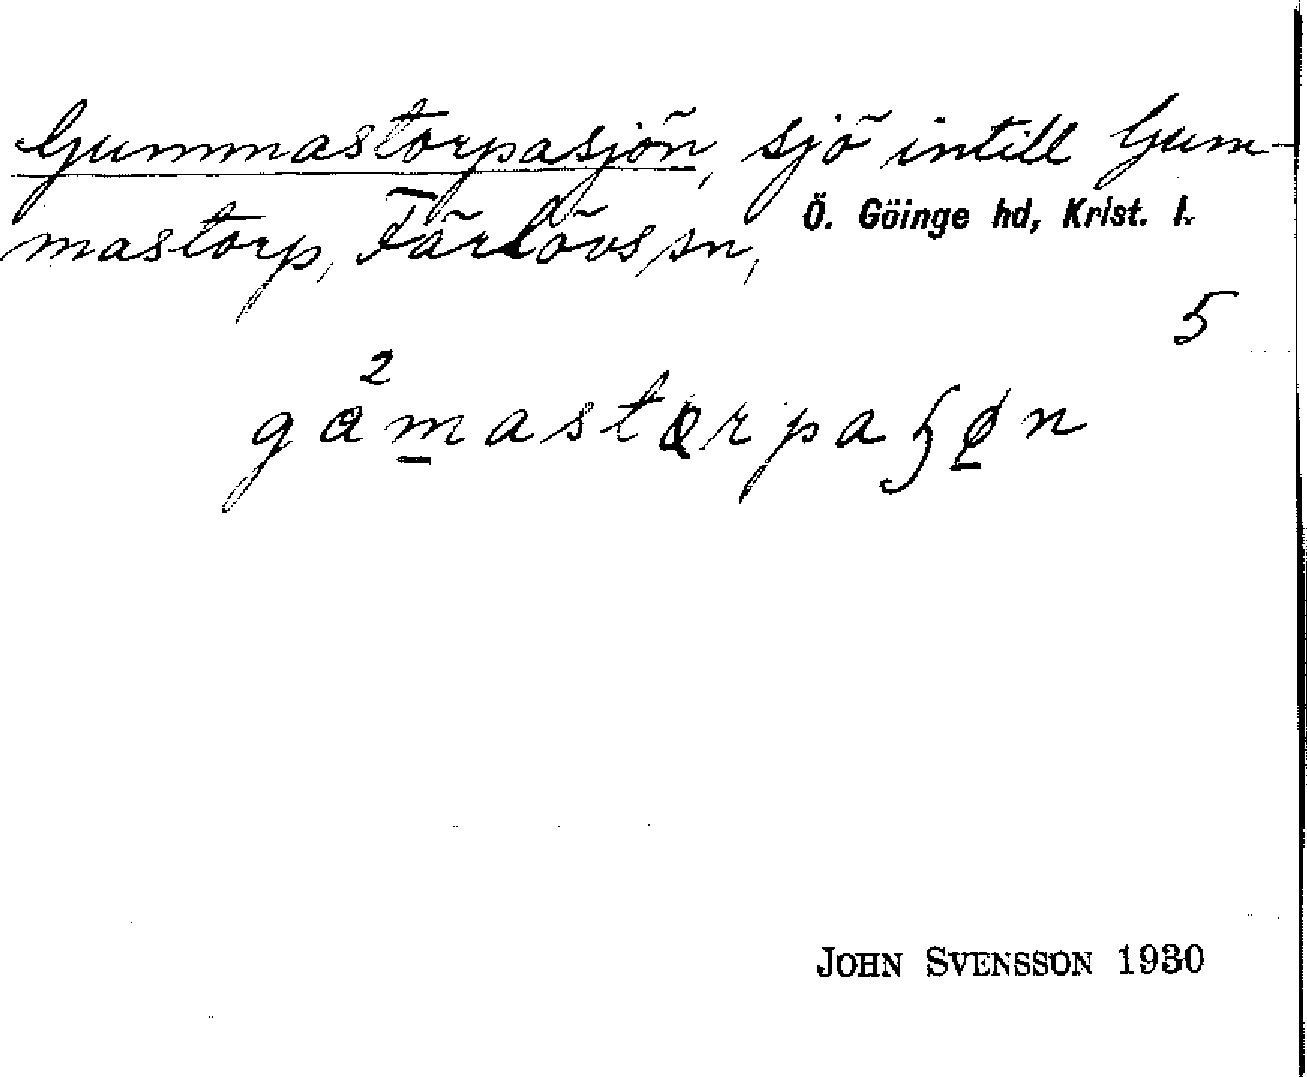 Gummastorpasjön, sjö intill Gum-
mastorp, Färlövs sn, Ö. Göinge hd, Krist. l.
5
JOHN SVENSSON 1930